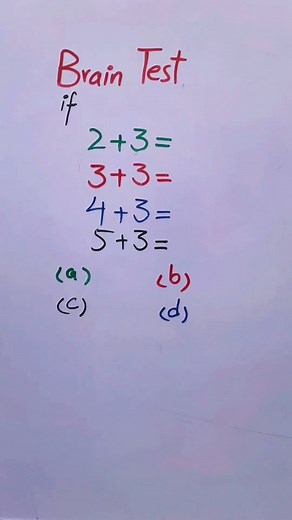 Brain Test
if
2+3=
3+3=
4+3=
5+3=
(a) (b)
(c) (d)